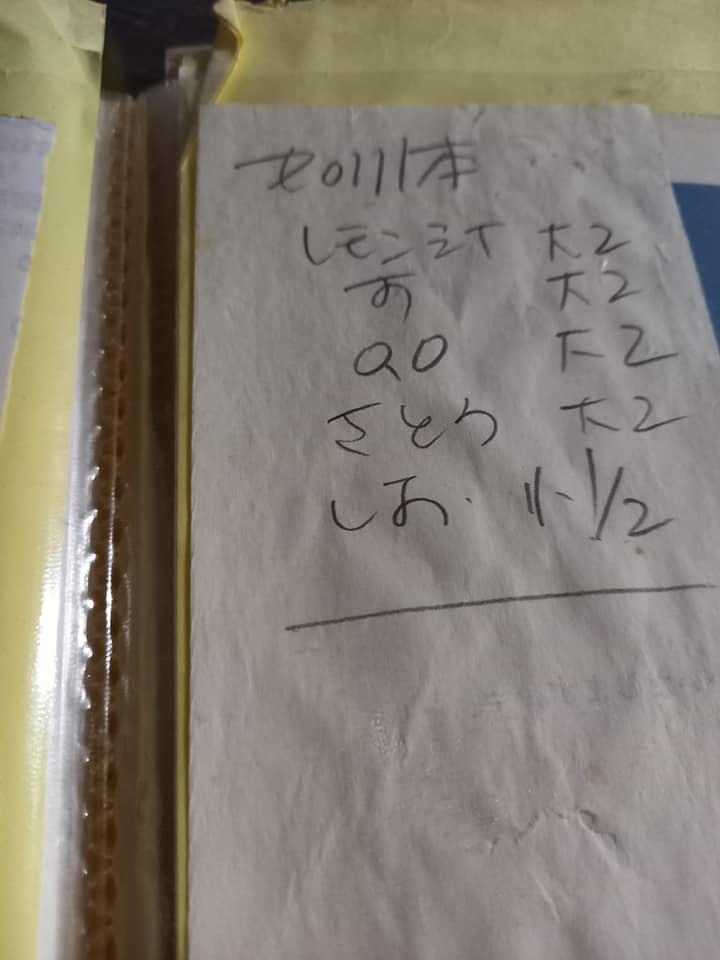 セロリ1本
レモン汁 大2
す 大2
油 大2
さとう 大2
しお 小1/2